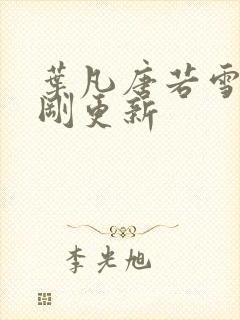 葉凡唐若雪
剛更新
李光旭